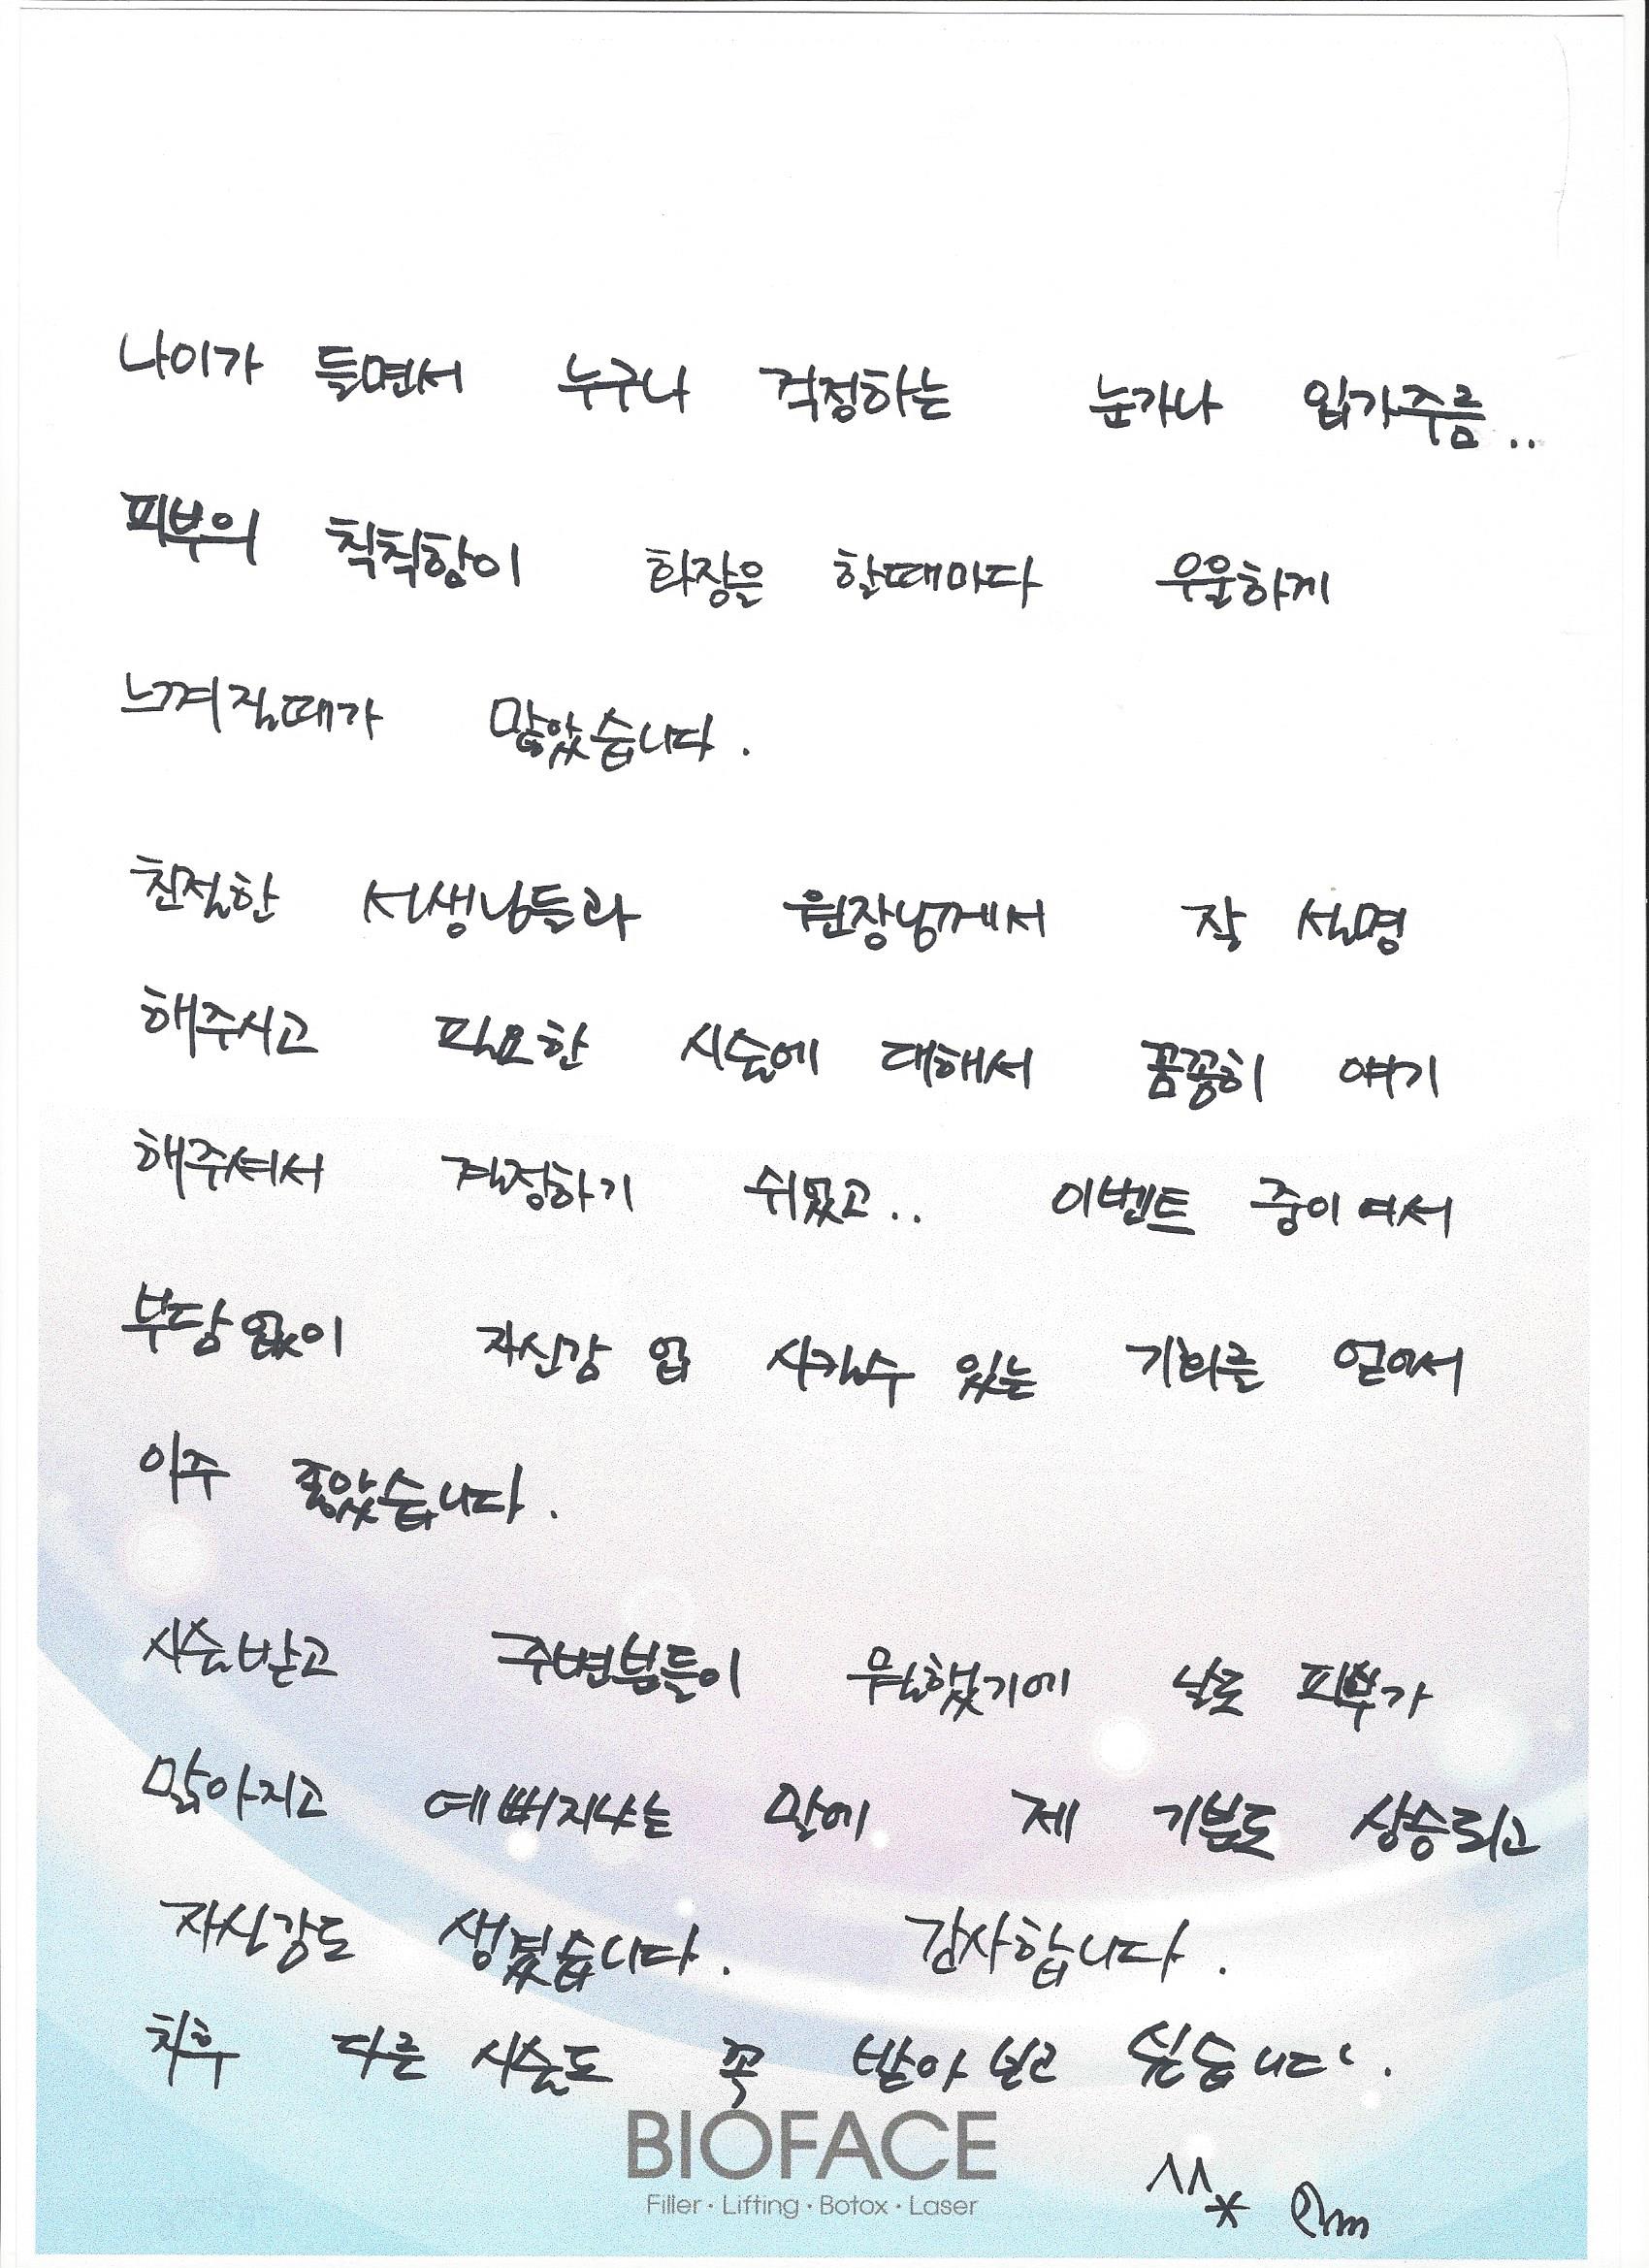 나이가 들면서 누구나 걱정하는 눈가나 입가주름..
피부의 칙칙함이 화장을 할때마다 우울하게
느껴질때가 많았습니다.
친절한 서생님들과 원장님께서 잘 설명
해주시고 필요한 시술에 대해서 꼼꼼히 얘기
해주셔서 결정하기 쉬웠고.. 이벤트 중이여서
부담없이 자신감 업 시킬수 있는 기회를 얻어서
아주 좋았습니다.
시술받고 주변분들이 뭘했기에 날로 피부가
맑아지고 예뻐지냐는 말에 제 기분도 상승되고
자신감도 생겼습니다. 감사합니다.
차후 다른 시술도 꼭 받아 보고 싶습니다.
BIOFACE
Filler · Lifting · Botox · Laser
^^*